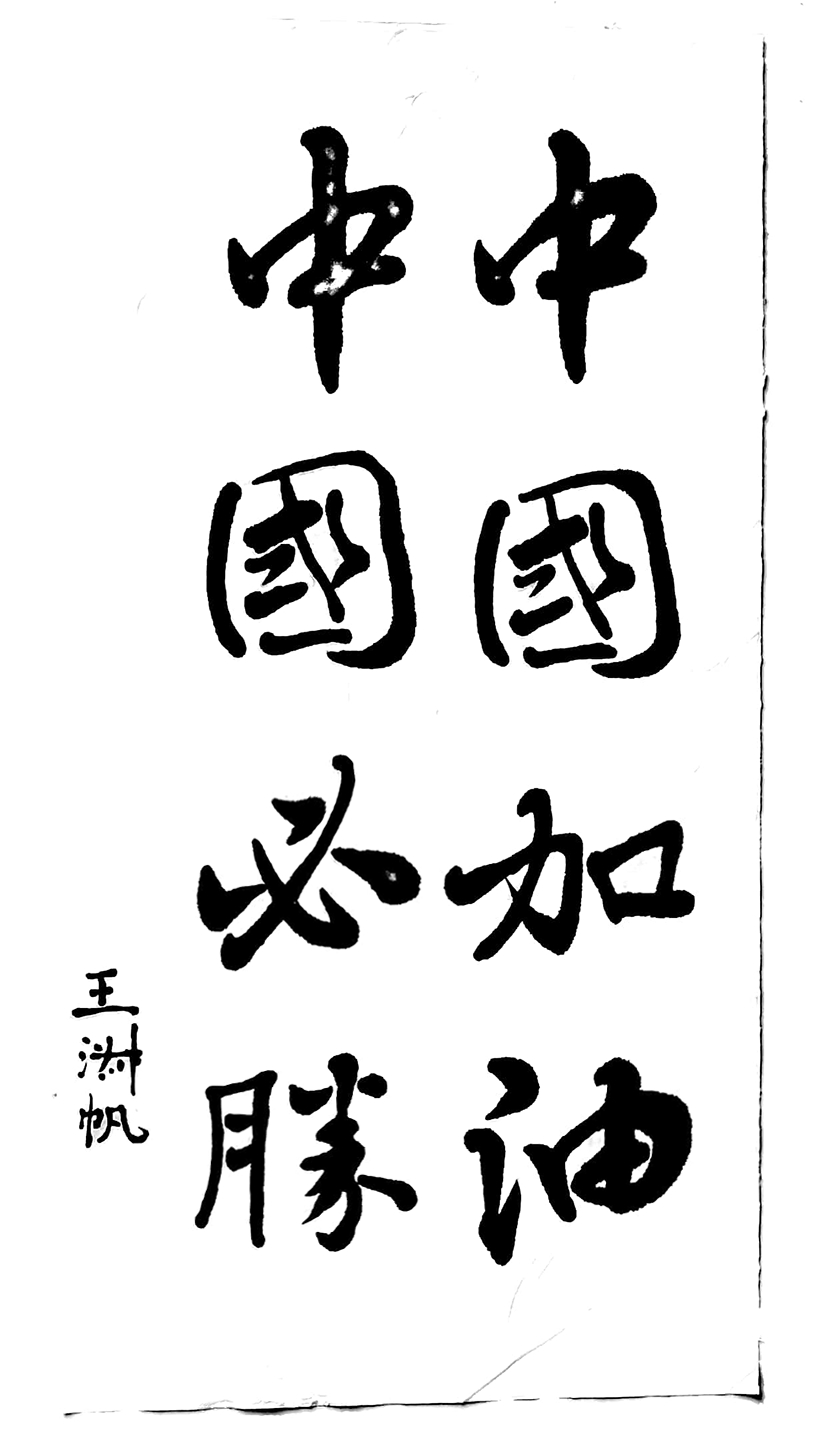 中國加油
中國必勝
王淵帆